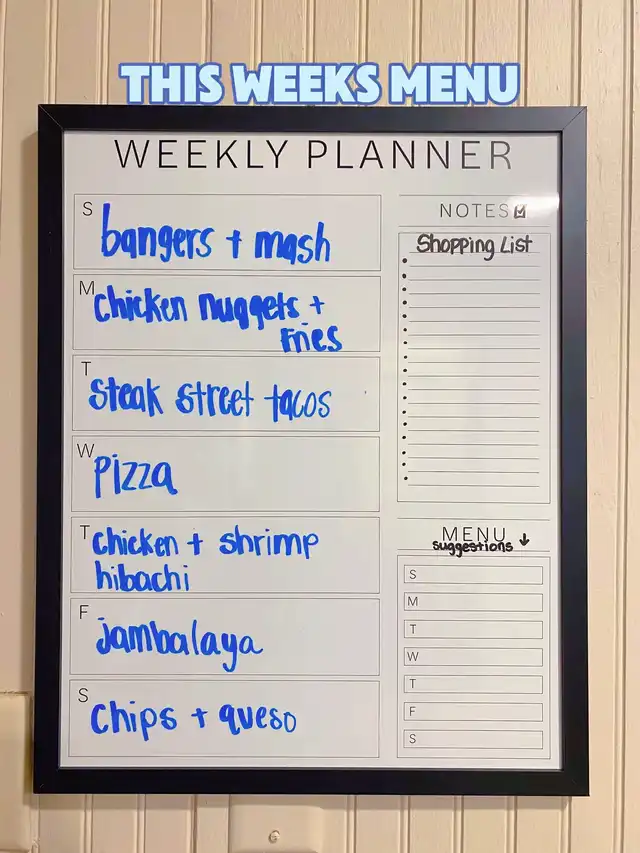 THIS WEEKS MENU
WEEKLY PLANNER
S
bangers + mash
M
chicken nuggets +
fries
T
steak street tacos
W
pizza
T
chicken + shrimp
hibachi
F
jambalaya
S
chips + queso
NOTES
Shopping List
MENU
suggestions ↓
S
M
T
W
T
F
S